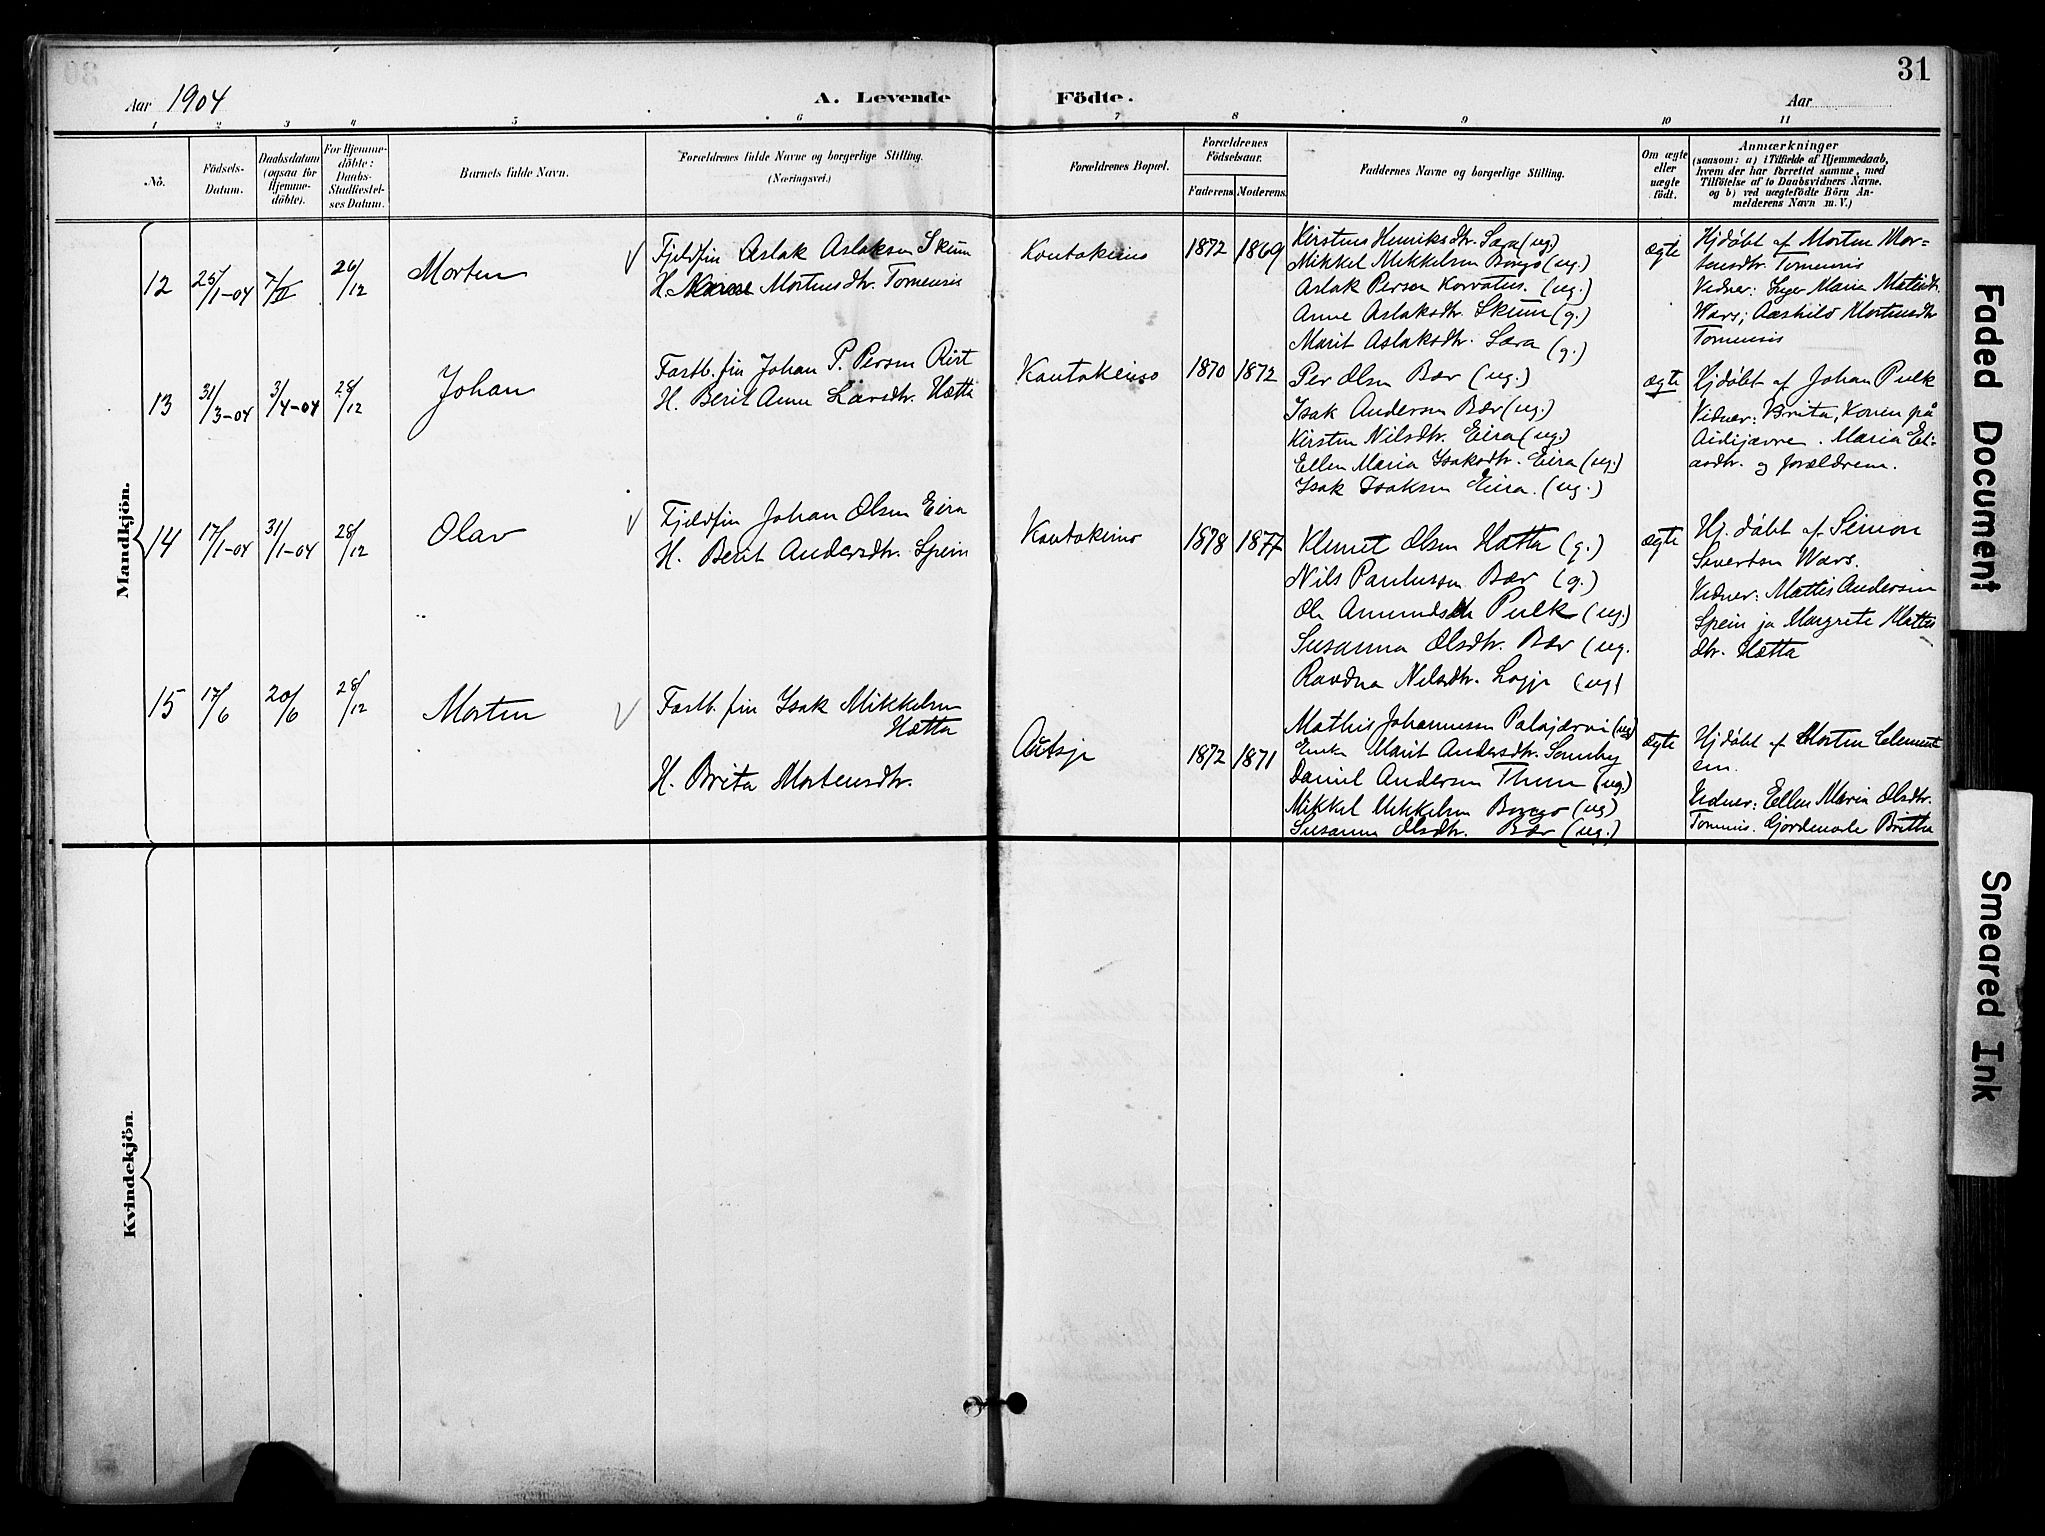 31
Aar 1904
A. Levende Födte.
Aar
1 2 3 4 5 6 7 8 9 10 11
No.
Födsels-
Datum.
Daabsdatum
(ogsaa for
Hjemme-
döbte).
For Hjemme-
döbte:
Daabs-
Stadfæstel-
ses Datum.
Barnets fulde Navn.
Forældrenes fulde Navne og borgerlige Stilling.
(Næringsvei.)
Forældrenes Bopæl.
Forældrenes
Födselsaar.
Faderens Moderens
Faddernes Navne og borgerlige Stilling.
Om ægte
eller
uægte
födt.
Anmærkninger
(saasom: a) i Tilfælde af Hjemmedaab,
hvem der har forrettet samme, med
Tilföielse af to Daabsvidners Navne,
og b) ved uægtefödte Börn An-
melderens Navn m. V.)
Mandkjön.
12
25/1-04
7/II
26/12
Morten
Fjeldfin Aslak Aslaksen Skum
H. Mortensdtr. Tornensis
Kautokeino
1872
1869
Kirstine Henriksdtr. Sara (ug)
Mikkel Mikkelsen Bongo (ug.)
Aslak Person Korvatus. (ug.)
Anne Aslaksdtr. Skum (g.)
Marit Aslaksdtr. Sara (g.)
ægte
Hjdøbt af Morten Mor-
tensdtr. Tornensis
Vidner: Inger Maria Matisdtr.
Wars; Aashild Mortensdtr
Tornensis
13
31/3-04
3/4-04
28/12
Johan
Fastb. fin Johan P. Persen Riit
H. Berit Anne Larsdtr. Hætta
Kautokeino
1870
1872
Per Olsen Bær (ug.)
Isak Andersen Bær (ug.)
Kirsten Nilsdtr. Eira (ug.)
Ellen Maria Isaksdtr. Eira (ug.)
Isak Isaksen Eira. (ug.)
ægte
Hjdøbt af Johan Pulk
Vidner: Brita, Konen på
Aidijavre. Maria Eli-
asdtr. og forældrene.
14
17/1-04
31/1-04
28/12
Olav
Fjeldfin Johan Olsen Eira
H. Berit Andersdtr. Spein
Kautokeino
1878
1877
Klemet Olsen Hætta (g.)
Nils Paulusson Bær (g.)
Ole Amundsen Pulk (ug.)
Susanna Olsdtr. Bær (ug.
Ravdna Nilsdtr. Logje (ug)
ægte
Hj. døbt af Simon
Sivertsen Wars.
Vidner: Mattis Andersen
Spein ja Margrete Mattis
dtr. Hætta
15
17/6
20/6
28/12
Morten
Fastb. fin Isak Mikkelsen
Hætta
H. Brita Mortensdtr.
Autsje
1872
1871
Mathis Johannessen Palojærvi (ug)
Enke Marit Andersdtr. Somby
Daniel Andersen Thuri (ug.)
Mikkel Mikkelsen Bongo (ug)
Susanna Olsdtr. Bær (ug.)
ægte
Hjdøbt af Morten Clement
sen.
Vidner: Ellen Maria Olsdtr.
Tornens. Gjordemode Britha
Kvindekjön.
Faded Document
Smeared Ink